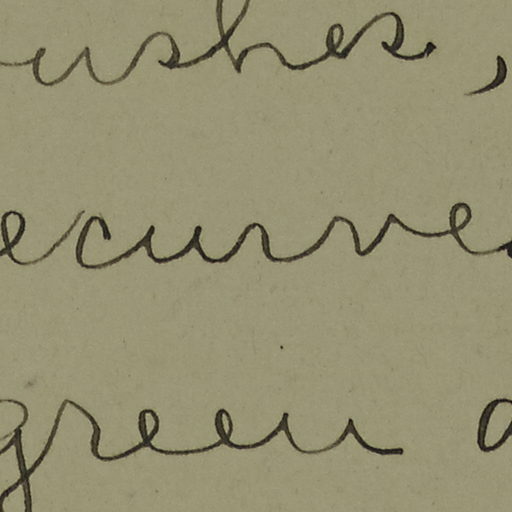 ushes,
ecurve
green a